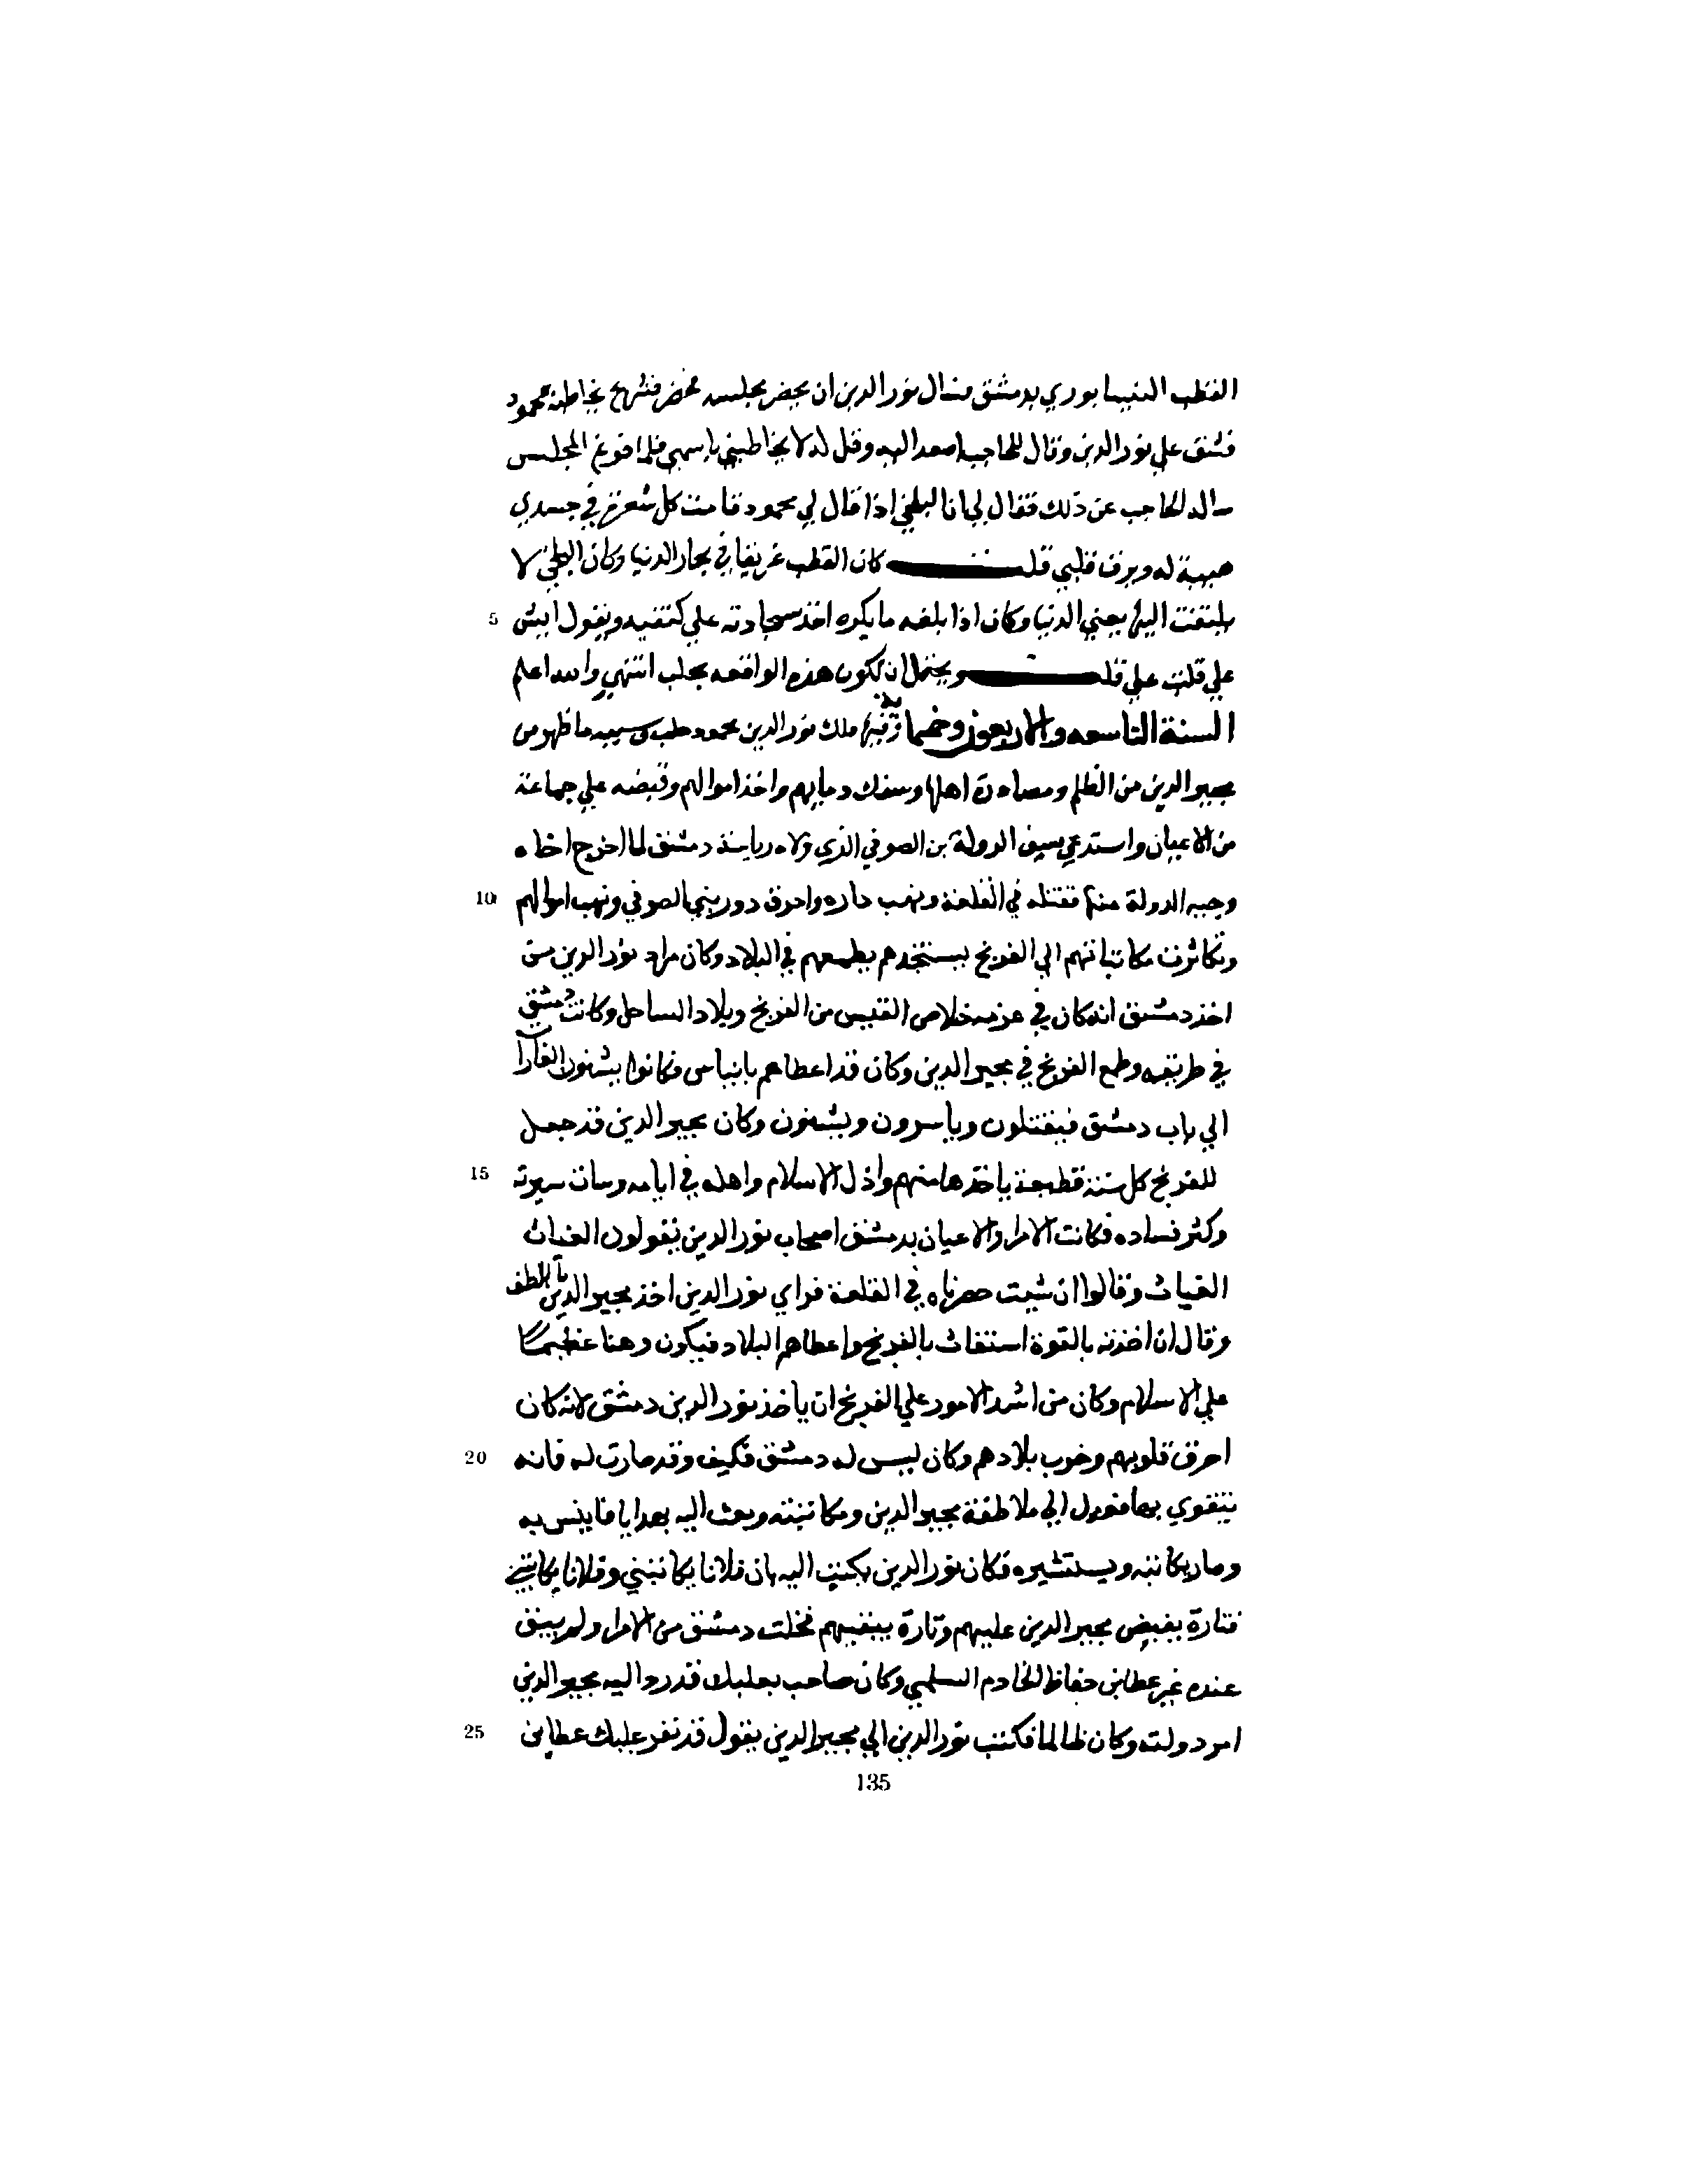 القطب النيسابوري بدمشق فسال نور الدين ان يحضر مجلسه فحضر فشرع يخاطبه محمود
فشق علي نور الدين وقال للحاجب اصعد اليه وقل له لا يخاطبني باسمي فلما فرغ المجلس
ساله الحاجب عن ذلك فقال لي انا البلخي اذا قال لي محمود قامت كل شعرة في جسدي
هيبة له ويرق قلبي قلت كان القطب غريقا في بحار الدنيا وكان البلخي لا
يلتفت اليها يعني الدنيا وكان اذا بلغه ما يكره اخذ سجادته علي كتفيه ويقول ايش
علي قلت علي قلت ويحتمل ان تكون هذه الواقعه بحلب انتهي والله اعلم
السنة التاسعه والاربعون وخمسمايه فيها ملك نور الدين محمود سببه ما ظهر من
مجير الدين من الظلم ومصادرة اهلها وسفك دمايهم واخذ اموالهم وقبضه علي جماعة
من الاعيان واستدعي سيف الدولة بن الصوفي الذي ولاه رياسة دمشق لما اخرج اخاه
وجيه الدولة منها فقتله في القلعة ونهب داره واحرق دور بني الصوفي ونهب اموالهم
وتكاثرت مكاتباتهم الي الفرنج يستنجدهم يطمعهم في البلاد وكان مراد نور الدين من
اخذ دمشق انه كان في عزمه خلاص القدس من الفرنج وبلاد الساحل وكانت دمشق
في طريقه وطمع الفرنج في مجير الدين وكان قد اعطاهم بانياس فكانوا يشنون الغارات
الي باب دمشق فيقتلون وياسرون ويشنون وكان مجير الدين قد جعل
للفرنج كل سنة قطيعة ياخذها منهم واذل الاسلام واهله في ايامه وسات سيرته
وكثر فساده فكانت الامرا والاعيان بدمشق اصحاب نور الدين يقولون الغياث
الغياث وقالوا ان شيت حصرناه في القلعة فراي نور الدين اخذ مجير الدين باللطف
وقال ان اخذته بالقوة استغاث بالفرنج واعطاهم البلاد فيكون وهنا عظيما
علي الاسلام وكان من اشد الامور علي الفرنج ان ياخذ نور الدين دمشق لانه كان
احرق قلوبهم وخرب بلادهم وكان ليس له دمشق فكيف وقد صارت له فانه
يتقوي بها فعدل الي ملاطفة مجير الدين ومكاتبته وبعث اليه بهدايا فاينس به
وصار يكاتبه ويستشيره فكان نور الدين يكتب اليه بان فلانا يكاتبني وفلانا يكاتبني
فتارة يقبض مجير الدين عليهم وتارة ينفيهم فخلت دمشق من الامرا ولم يبق
عنده غير عطا بن حفاظ الخادم السلمي وكان صاحب بعلبك قد رد اليه مجير الدين
امر دولته وكان ظالما فكتب نور الدين الي مجير الدين يقول قد نفر عليك عطا بن
5
10
15
20
25
135